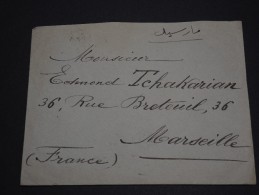 مارسيل
Monsieur
Edmond Tchakarian
36, Rue Breteuil, 36
Marseille
(France)